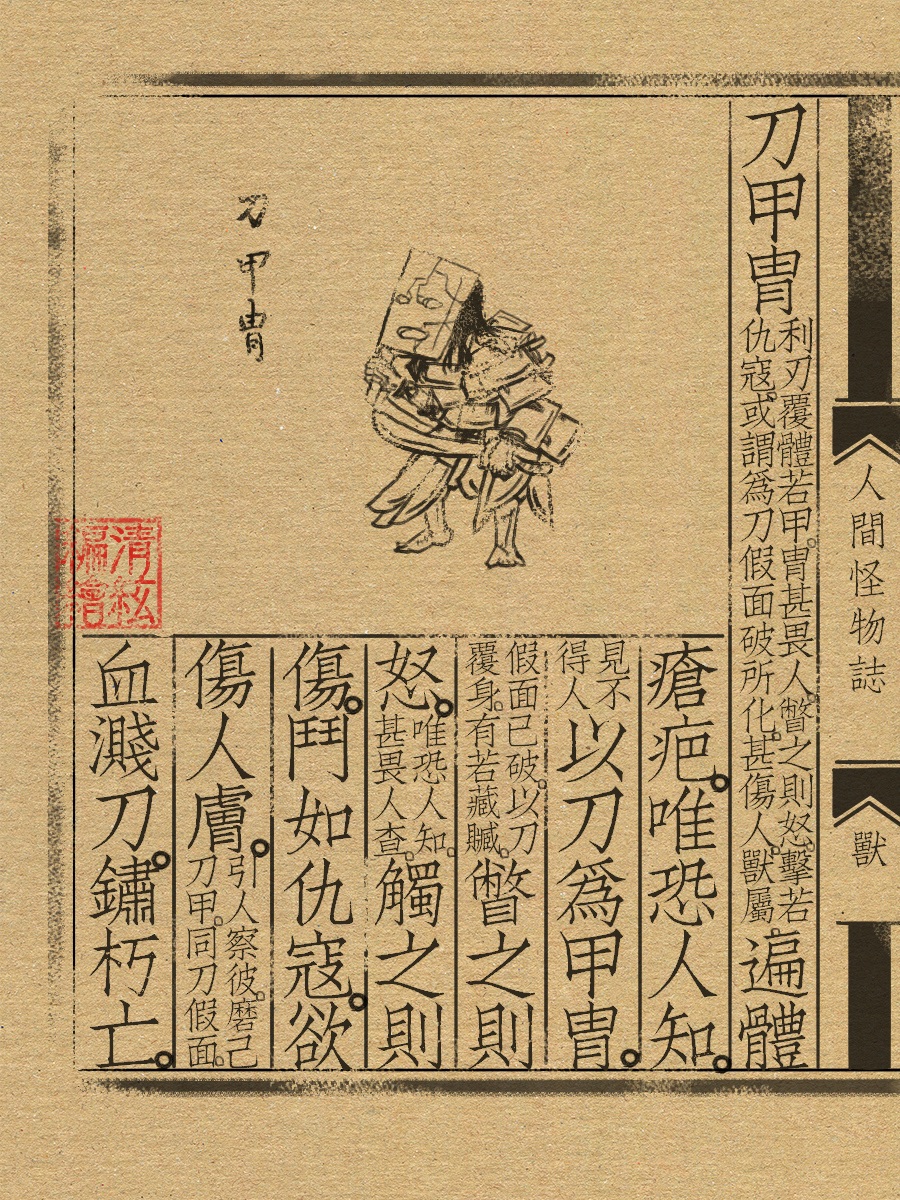 人間怪物誌
獸
刀甲冑
利刃覆體若甲。冑甚畏人。瞥之則怒。擊若
仇寇。或謂爲刀假面破所化。甚傷人。獸屬。
遍體
瘡疤。唯恐人知。
見不
得人
以刀爲甲冑。
假面已破。以刀
覆身。有若藏贓。
瞥之則
怒。
唯恐人知。
甚畏人查。
觸之則
傷。鬥如仇寇。欲
傷人膚。
引人察彼。磨己
刀甲。同刀假面。
血濺刀。鏽朽亡。
刀甲冑
清絃
編繪